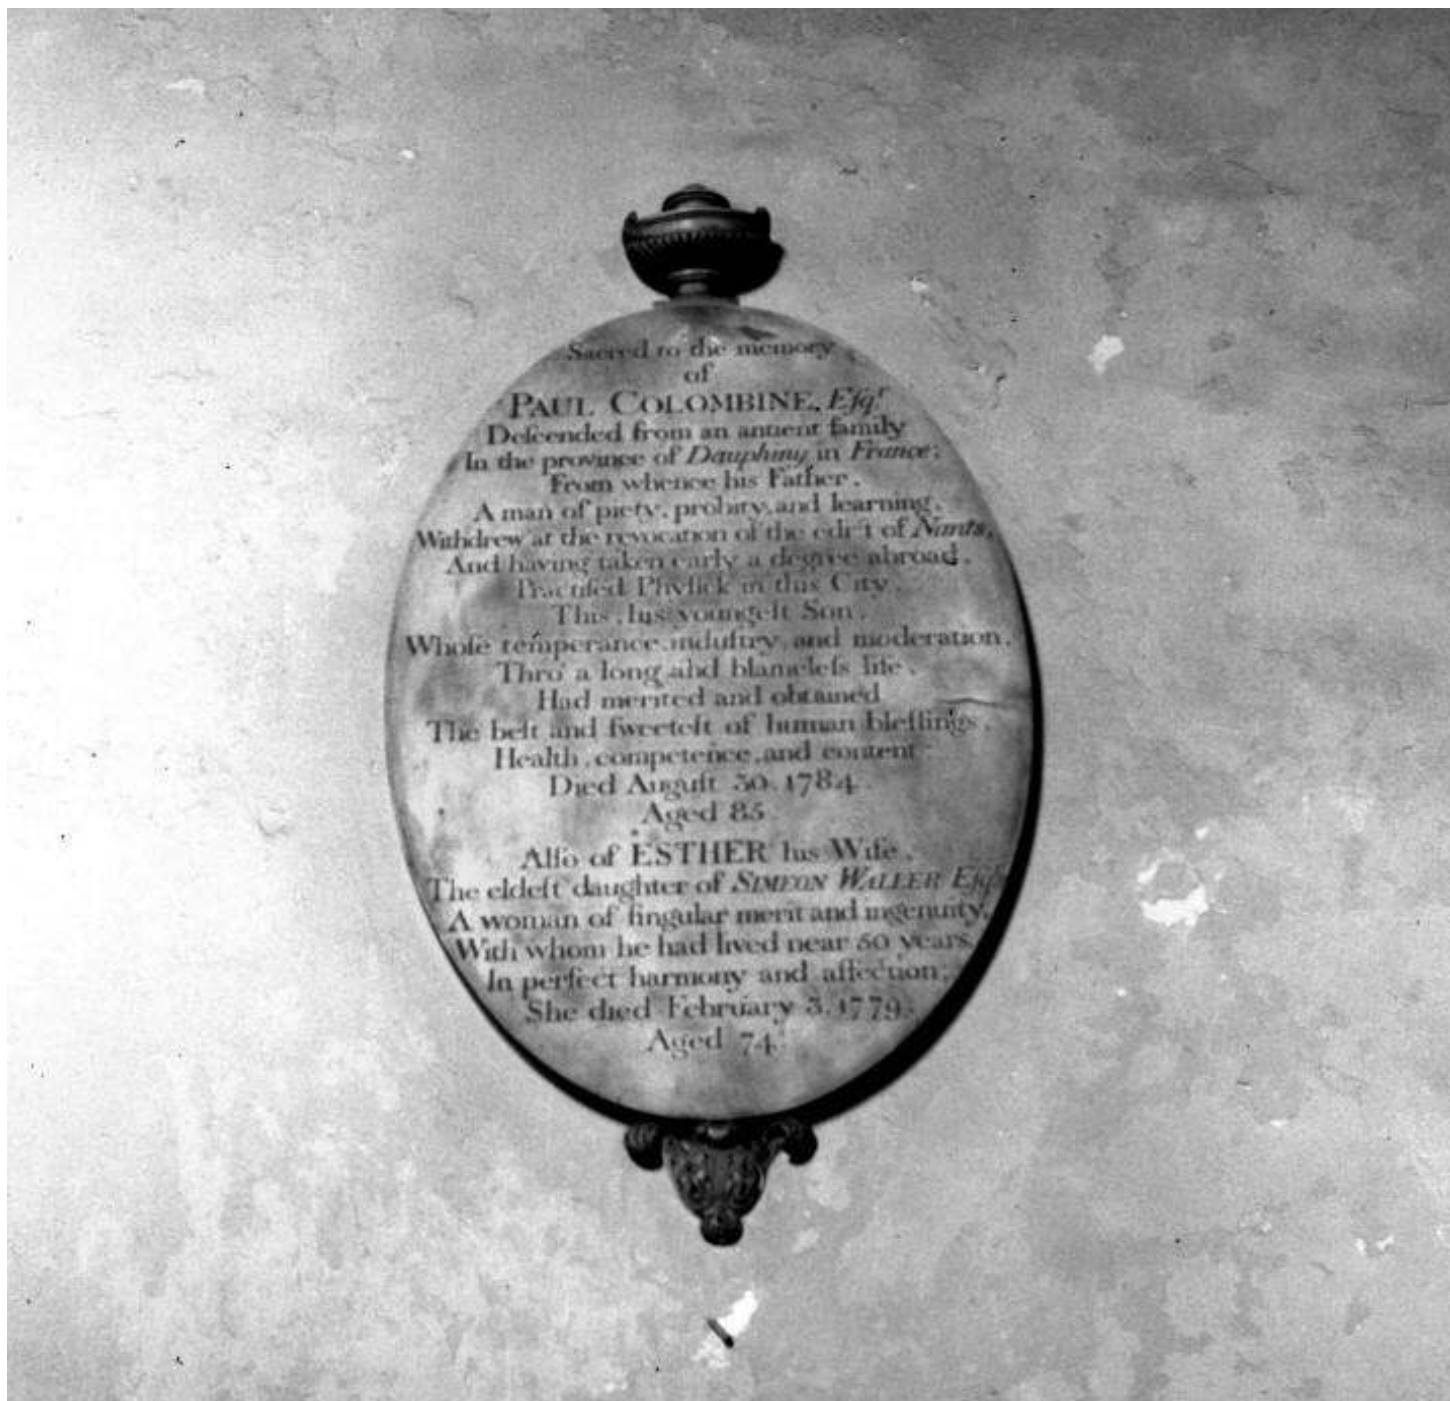 Sacred to the memory
of
PAUL COLOMBINE, Eſqr.
Deſcended from an antient family
In the province of Dauphiny in France;
From whence his Father,
A man of piety, probity, and learning,
Withdrew at the revocation of the edict of Nants,
And having taken early a degree abroad,
Practiſed Phyſick in this City.
This, his youngeſt Son,
Whoſe temperance, induſtry, and moderation,
Thro' a long and blameleſs life,
Had merited and obtained
The beſt and ſweeteſt of human bleſſings,
Health, competence, and content:
Died Auguſt 30, 1784.
Aged 85.
Alſo of ESTHER his Wife,
The eldeſt daughter of SIMEON WALLER Eſqr.
A woman of ſingular merit and ingenuity,
With whom he had lived near 50 years,
In perfect harmony and affection;
She died February 3, 1779,
Aged 74.